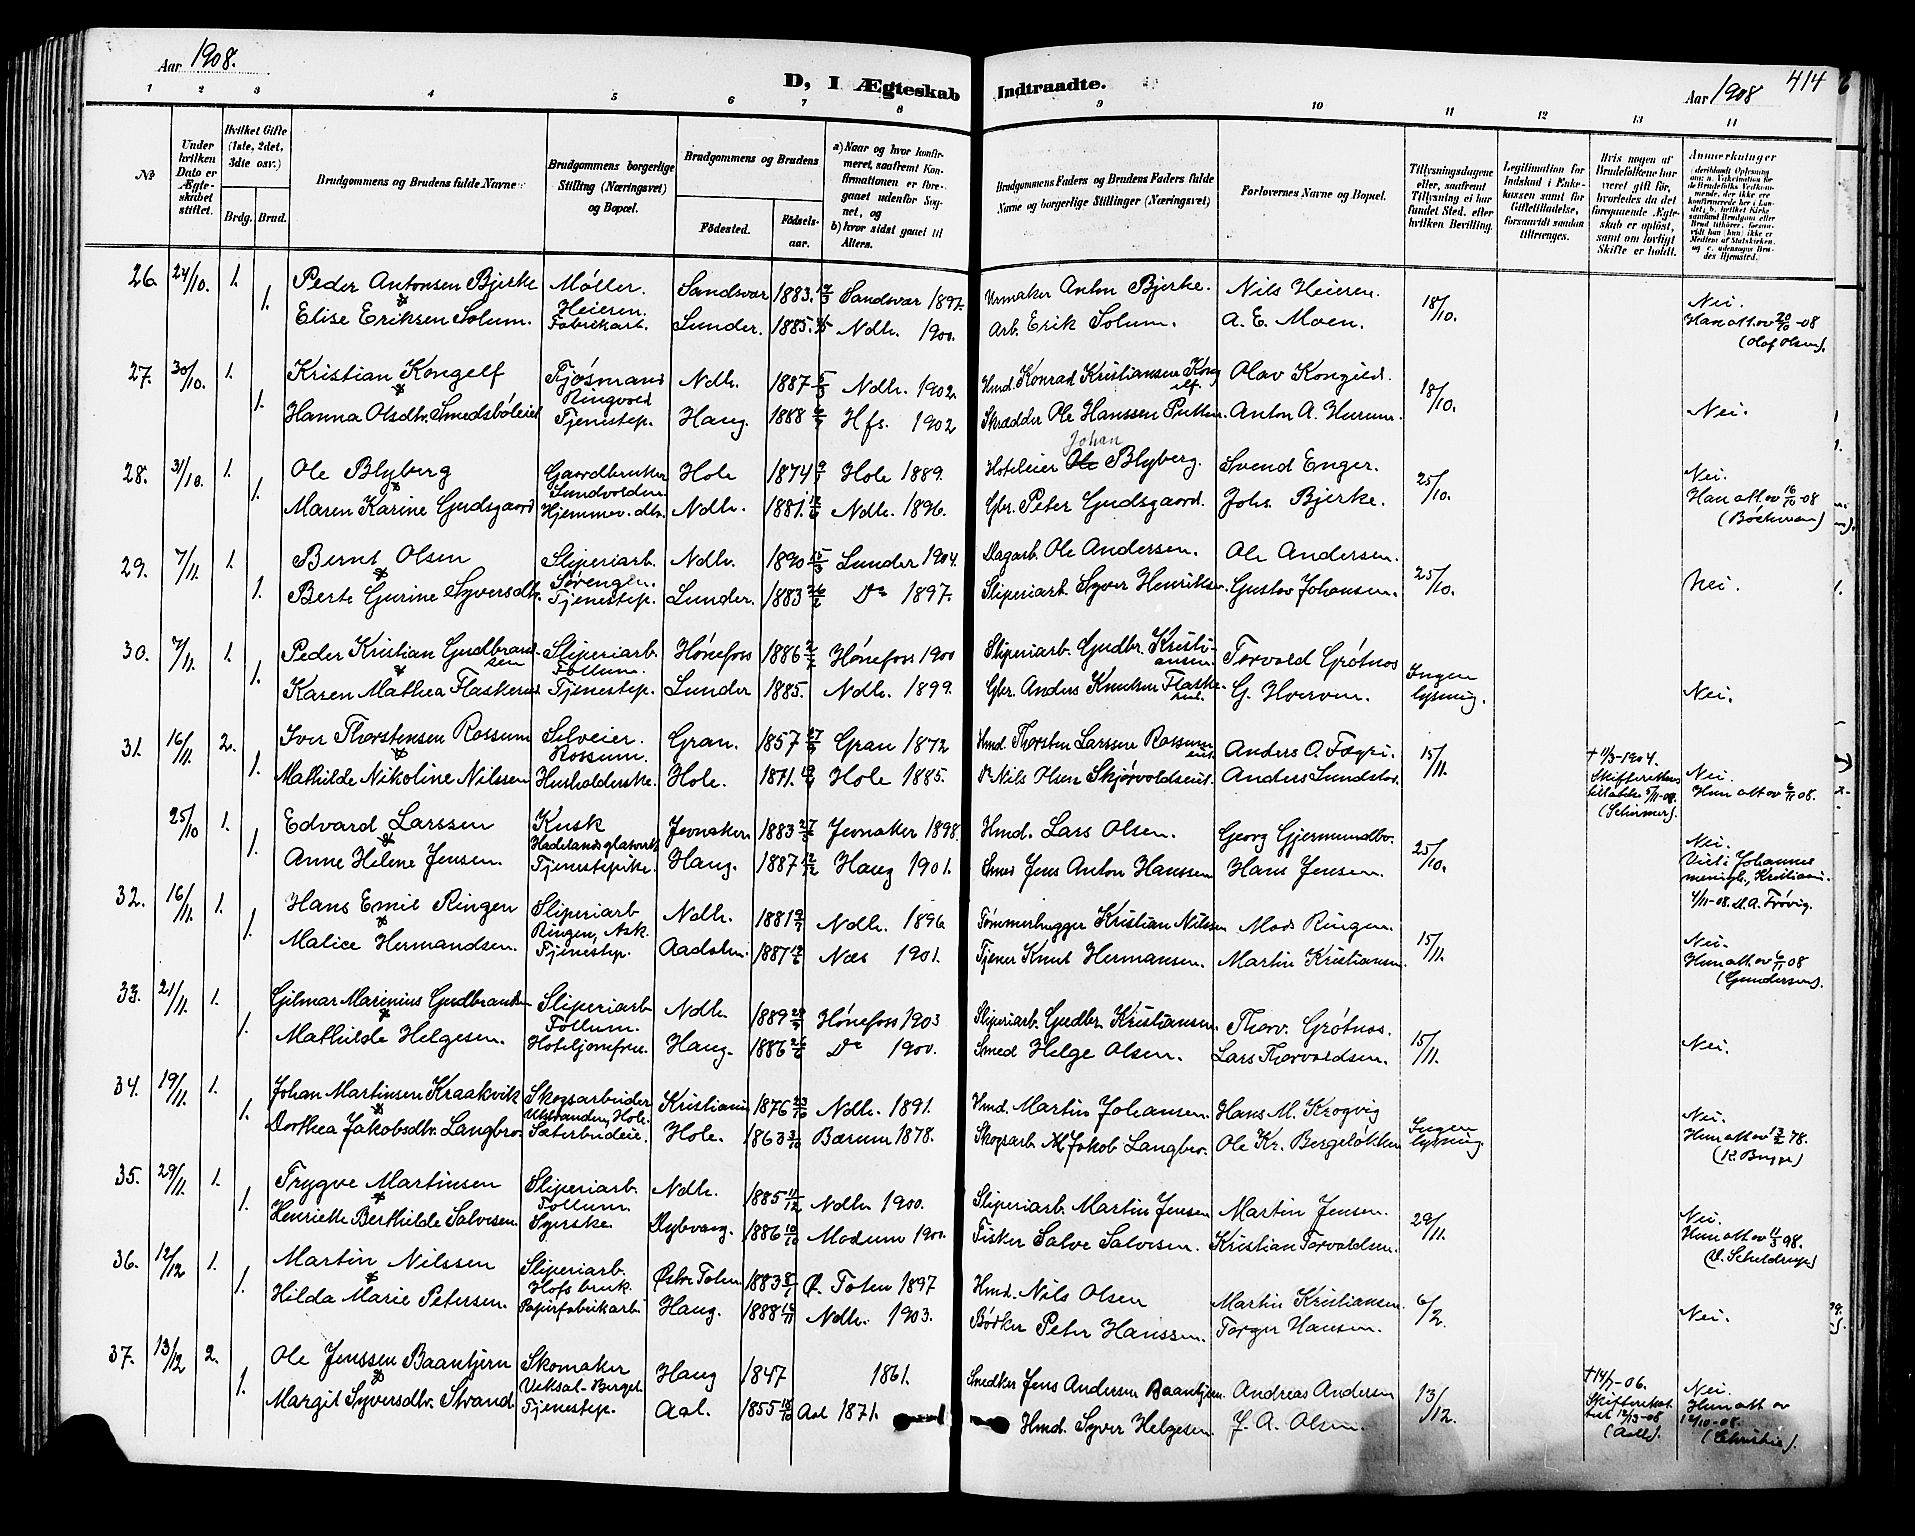 Aar 1908.
D, I Ægteskab Indtraadte.
Aar 1908
414
1 2 3 4 5 6 7 8 9 10 11 12 13 14
No
Under hvilken Dato er Ægteskabet stiftet.
Hvilket Gifte (1ste, 2det, 3die osv.)
Brdg. Brud.
Brudgommens og Brudens fulde Navne
Brudgommens borgerlige Stilling (Næringsvei) og Bopæl.
Brudgommens og Brudens
Fødested.
Fødselsaar.
a) Naar og hvor konfirmeret, saafremt Konfirmationen er foregaaet udenfor Sognet, og
b) hvor sidst gaaet til Alters.
Brudgommens Faders og Brudens Faders fulde Navne og borgerlige Stillinger (Næringsvei)
Forlovernes Navne og Bopæl.
Tillysningsdagene eller, saafremt Tillysning ei har fundet Sted, efter hvilken Bevilling.
Legitimation for Indskud i Enkekassen samt for Giftetilladelse, forsaavidt saadan tiltrænges.
Hvis nogen af Brudefolkene har været gift før, hvorledes da det foregaaende Ægteskab er opløst, samt om lovligt Skifte er holdt.
Anmerkninger
26. 24/10. 1. Peder Antonsen Bjerke Møller. Sandsvær 1883. Sandsvær 1897. Urmaker Anton Bjerke. Nils Heieren. 18/10. Nei.
Heieren.
1. Elise Eriksen Solum. Fabrikarb. Lunder. 1885. Ndh. 1900. Arb. Erik Solum. A. E. Moen. Han att. av 20/10-08
(Olaf Olsen).
27. 30/10. 1. Kristian Kongelf Fjøsmand Ndh. 1887 Ndh. 1902 Hmd. Konrad Kristiansen Kongelf. Olav Kongild. 18/10.
Ringvold
1. Hanna Olsdtr. Smedsbøleiet Tjenestep. Haug. 1888 Hfs. 1902 Skrædder Ole Hanssen Putten. Anton A. Hurum. Nei.
28. 31/10. 1. Ole Blyberg Gaardbruker Hole 1874 Hole 1889. Hoteleier Johan Blyberg. Svend Enger. 25/10. Nei.
Sundvolden
1. Maren Karine Gudsgaard Hjemmev. dtr. Ndh. 1881. Ndh. 1896. Gbr. Peter Gudsgaard. Johs. Bjerke. Han att. av 16/10-08
(Bøckman)
29. 7/11. 1. Bernt Olsen Sliperiarb. Ndh. 1890 Lunder 1904. Dagarb. Ole Andersen. Ole Andersen. 25/10. Nei.
Sørengen.
1. Berte Gurine Syversdtr. Tjenestep. Lunder. 1883 Do 1897. Sliperiarb. Syver Henriksen. Gustav Johansen.
30. 7/11. 1. Peder Kristian Gudbrandsen Sliperiarb. Hønefoss 1886 Hønefoss 1900 Sliperiarb. Gudbr. Kristiansen. Torvald Grøtnos Ingen lysning.
Follum.
1. Karen Mathea Flaskerud Tjenestep. Lunder 1885. Ndh. 1899. Gbr. Anders Knutsen Flaskerud. G. Hverven. Nei.
31. 16/11. 2. Iver Thorstensen Rossum Selveier. Gran. 1857 Gran 1872 Hmd. Thorsten Larssen Rossumeiet. Anders O. Fægri. 15/11. † 11/3-1904. Nei.
Rossum.
1. Mathilde Nikoline Nilssen Husholderske. Hole. 1871. Hole 1885. Do Nils Olsen Skjørvoldseiet. Anders Lundstad. Skifterettens tiladelse 5/11-08. (Schirmer). Hun att. av 6/11 08.
25/10 1. Edvard Larssen Kusk Jevnaker 1883 Jevnaker 1898. Hmd. Lars Olsen. Georg Gjermundbo. 25/10. Nei.
Hadelands glasverk
1. Anne Helene Jensen. Tjenestepike. Haug. 1887 Haug 1901. Smed Jens Anton Hanssen Hans Jensen. Viet i Johannes menigh., Kristiania
4/11-08. A. Frøvig.
32. 16/11. 1. Hans Emil Ringen Sliperiarb Ndh. 1881 Ndh. 1896 Tømmerhugger Kristian Nilssen Mads Ringen. 15/11. Nei.
Ringen, Ask.
1. Malice Hermandsen. Tjenestep. Aadalen. 1887 Næs 1901. Tjener Knut Hermansen. Martin Kristiansen Hun att. av 6/11 08
(Gundersen)
33. 21/11. 1. Gilmar Marinius Gudbrandsen Sliperiarb. Ndh. 1889 Hønefoss 1903 Sliperiarb. Gudbr. Kristiansen. Thorv. Grøtnos. 15/11.
Follum.
1. Mathilde Helgesen. Hoteljomfrue. Haug. 1886 Do 1900. Smed Helge Olsen. Lars Thorvaldsen. Nei.
34. 19/11. 1. Johan Martinsen Kraakvik Skogsarbeider Kristiania 1876 Ndh. 1891. Hmd. Martin Johansen Hans M. Krogvig Ingen lysning. Nei.
Utstranden, Hole.
1. Dorthea Jakobsdtr. Langbro. Sæterbudeie. Hole. 1863 Bærum 1878. Skogsarb. Jakob Langbro. Ole Kr. Bergeløkken Hun att. av 13/2 78.
(K. Bugge)
35. 29/11. 1. Trygve Martinsen Sliperiarb. Ndh. 1885 11/12 Ndh. 1900. Sliperiarb. Martin Jensen Martin Jensen. 29/11. Nei.
Follum.
1. Henriette Berthilde Salvesen. Syerske. Dybvaag. 1886 Modum 1900. Fisker Salve Salvesen. Kristian Torvaldsen. Hun att. av 11/3 98.
36. 12/12 1. Martin Nilssen Sliperiarb. Østre Toten 1883 Ø. Toten 1897 Hmd. Nils Olsen Martin Kristiansen 6/2.
Hofs bruk.
1. Hilda Marie Petersen. Papirfabrikarb. Haug. 1888 Ndh. 1903. Bødker Peter Hanssen. Torger Hansen. Nei.
37. 13/12 2. Ole Jenssen Baantjern Skomaker Haug 1847 1861. Snedker Jens Andersen Baantjern Andreas Andersen 13/12. † 14/7-06. Nei.
Veksal-Berget
1. Margit Syversdtr. Strand Tjenestep. Aal. 1855 Aal 1871. Hmd. Syver Helgesen. J. A. Olsen. Hun att. av 12/10-08.
(Christie).